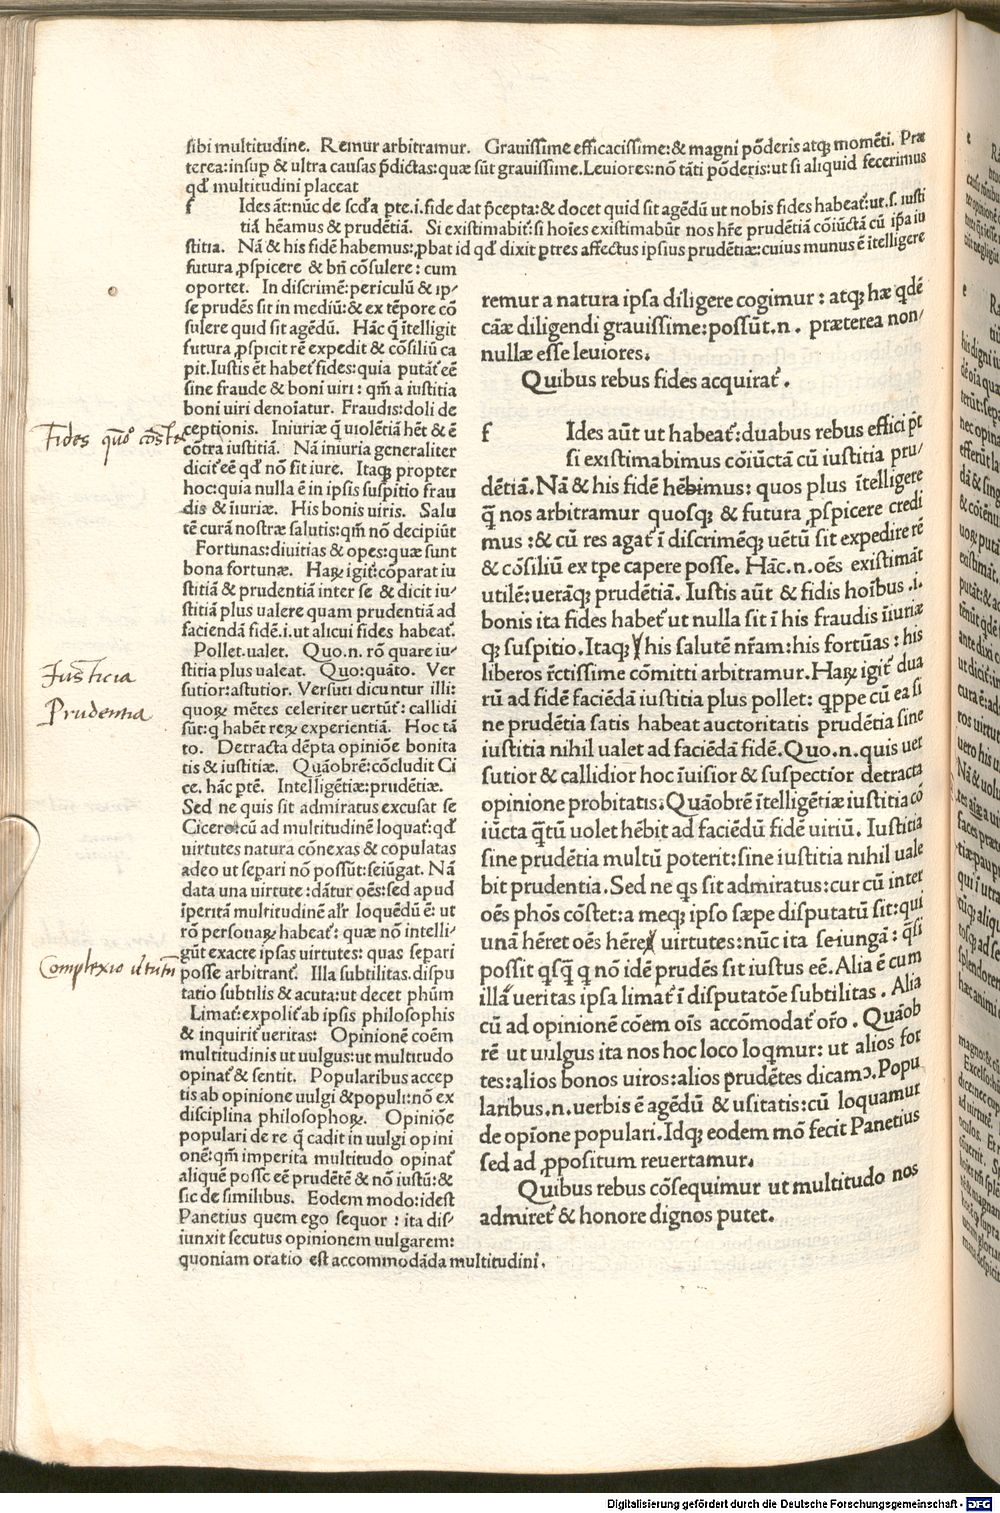 sibi multitudine. Remur arbitramur. Grauissime efficacissime:& magni põderis atqꝫ momẽti. Præ
terea:insup & ultra causas p̃dictas:quæ sũt grauissime.Leuiores:nõ tãti põderis:ut si aliquid fecerimus
qđ multitudini placeat
f Ides ãt:nũc de scđa pte.i.fide dat p̃cepta:& docet quid sit agẽdũ ut nobis fides habeat᷑:ut.s.iusti
tiã heamus & prudẽtiã. Si existimabit᷑:si hoĩes existimabũt nos hr̃e prudẽtiã cõiũctã cũ ip̃a iu
stitia. Nã & his fidẽ habemus:ꝓbat id qđ dixit ꝑtres affectus ipsius prudẽtiæ:cuius munus ẽ ĩtelligere
futura ꝓspicere & bñ cõsulere: cum
oportet. In discrimẽ:periculũ & ip⸗
se prudẽs sit in mediũ:& ex tẽpore cõ
sulere quid sit agẽdũ. Hãc q̃ ĩtelligit
futura ꝓspicit rẽ expedit & cõsiliũ ca
pit.Iustis ẽt habet᷑ fides:quia putãt᷑ eẽ
sine fraude & boni uiri: qm̃ a iustitia
boni uiri denoĩatur. Fraudis:doli de
ceptionis. Iniuriæ q̃ uiolẽtiã hẽt & ẽ
cõtra iustitiã. Nã iniuria generaliter
dicit᷑ eẽ qđ nõ fit iure. Itaqꝫ propter
hoc:quia nulla ẽ in ipsis suspitio frau
dis & ĩiuriæ. His bonis uiris. Salu
tẽ curã nostræ salutis:qm̃ nõ decipiũt
Fortunas:diuitias & opes:quæ sunt
bona fortunæ. Haꝝ igit᷑:cõparat iu
stitiã & prudentiã inter se & dicit iu⸗
stitiã plus ualere quam prudentiã ad
faciendã fidẽ.i.ut alicui fides habeat᷑.
Pollet.ualet. Quo.n. rõ quare iu⸗
stitia plus ualeat. Quo:quãto. Ver
sutior:astutior. Versuti dicuntur illi:
quoꝝ mẽtes celeriter uertũt᷑: callidi
sũt:q habẽt reꝝ experientiã. Hoc tã
to. Detracta dẽpta opiniõe bonita
tis & iustitiæ. Quãobrẽ:cõcludit Ci
ce. hãc ptẽ. Intelligẽtiæ:prudẽtiæ.
Sed ne quis sit admiratus excusat se
Cicero:cũ ad multitudinẽ loquat᷑:qđ
uirtutes natura cõnexas & copulatas
adeo ut separi nõ possũt:seiũgat. Nã
data una uirtute: dãtur oẽs:sed apud
ĩperitã multitudinẽ alr̃ loquẽdũ ẽ: ut
rõ personaꝝ habeat᷑: quæ nõ intelli⸗
gũt exacte ipsas uirtutes: quas separi
posse arbitrant᷑. Illa subtilitas.dispu
tatio subtilis & acuta:ut decet phũm
Limat᷑:expolit᷑ ab ipsis philosophis
& inquirit᷑ ueritas: Opinionẽ coẽm
multitudinis ut uulgus:ut multitudo
opinat᷑ & sentit. Popularibus accep
tis ab opinione uulgi & populi:nõ ex
disciplina philosophoꝝ. Opiniõe
populari de re q̃ cadit in uulgi opini
onẽ:qm̃ imperita multitudo opinat᷑
aliquẽ posse eẽ prudẽtẽ & nõ iustũ:&
sic de similibus. Eodem modo:idest
Panetius quem ego sequor : ita dis⸗
iunxit secutus opinionem uulgarem:
quoniam oratio est accommodãda multitudini.
remur a natura ipsa diligere cogimur : atqꝫ hæ qđẽ
cãæ diligendi grauissime:possũt.n. præterea non⸗
nullæ esse leuiores.
Quibus rebus fides acquirat᷑.
f Ides aũt ut habeat᷑:duabus rebus effici pt̃
si existimabimus cõiũctã cũ iustitia pru⸗
dẽtiã.Nã & his fidẽ hẽbimus: quos plus ĩtelligere
q̃ nos arbitramur quosqꝫ & futura ꝓspicere credi
mus :& cũ res agat᷑ ĩ discrimẽqꝫ uẽtũ sit expedire rẽ
& cõsiliũ ex tpe capere posse. Hãc.n.oẽs existimãt
utilẽ:uerãqꝫ prudẽtiã. Iustis aũt & fidis hoĩbus .i.
bonis ita fides habet᷑ ut nulla sit ĩ his fraudis ĩiuriæ
qꝫ suspitio.Itaqꝫ his salutẽ nr̃am:his fortũas : his
liberos rc̃tissime cõmitti arbitramur.Haꝝ igit᷑ dua
rũ ad fidẽ faciẽdã iustitia plus pollet: qppe cũ ea si
ne prudẽtia satis habeat auctoritatis prudẽtia sine
iustitia nihil ualet ad faciẽdã fidẽ.Quo.n.quis uer
sutior & callidior hoc ĩuisior & suspectior detracta
opinione probitatis.Quãobrẽ ĩtelligẽtiæ iustitia cõ
iũcta q̃tũ uolet hẽbit ad faciẽdũ fidẽ uiriũ. Iustitia
sine prudẽtia multũ poterit:sine iustitia nihil uale
bit prudentia.Sed ne qs sit admiratus:cur cũ inter
oẽs phõs cõstet:a meqꝫ ipso sæpe disputatũ sit:qui
unã hẽret oẽs hẽre uirtutes:nũc ita seiungã: q̃si
possit qsq̃ q nõ idẽ prudẽs sit iustus eẽ.Alia ẽ cum
illã ueritas ipsa limat᷑ ĩ disputatõe subtilitas . Alia
cũ ad opinionẽ cõem oĩs accõmodat᷑ or̃o . Quãob
rẽ ut uulgus ita nos hoc loco loqmur: ut alios for
tes:alios bonos uiros:alios prudẽtes dicamꝰ.Popu
laribus.n.uerbis ẽ agẽdũ & usitatis:cũ loquamur
de opĩone populari.Idqꝫ eodem mõ fecit Panetius
sed ad ꝓpositum reuertamur.
Quibus rebus cõsequimur ut multitudo nos
admiret᷑ & honore dignos putet.
Fides quõ cõstet
Justicia
Prudentia
Complexio ututũ
Digitalisierung gefördert durch die Deutsche Forschungsgemeinschaft - DFG